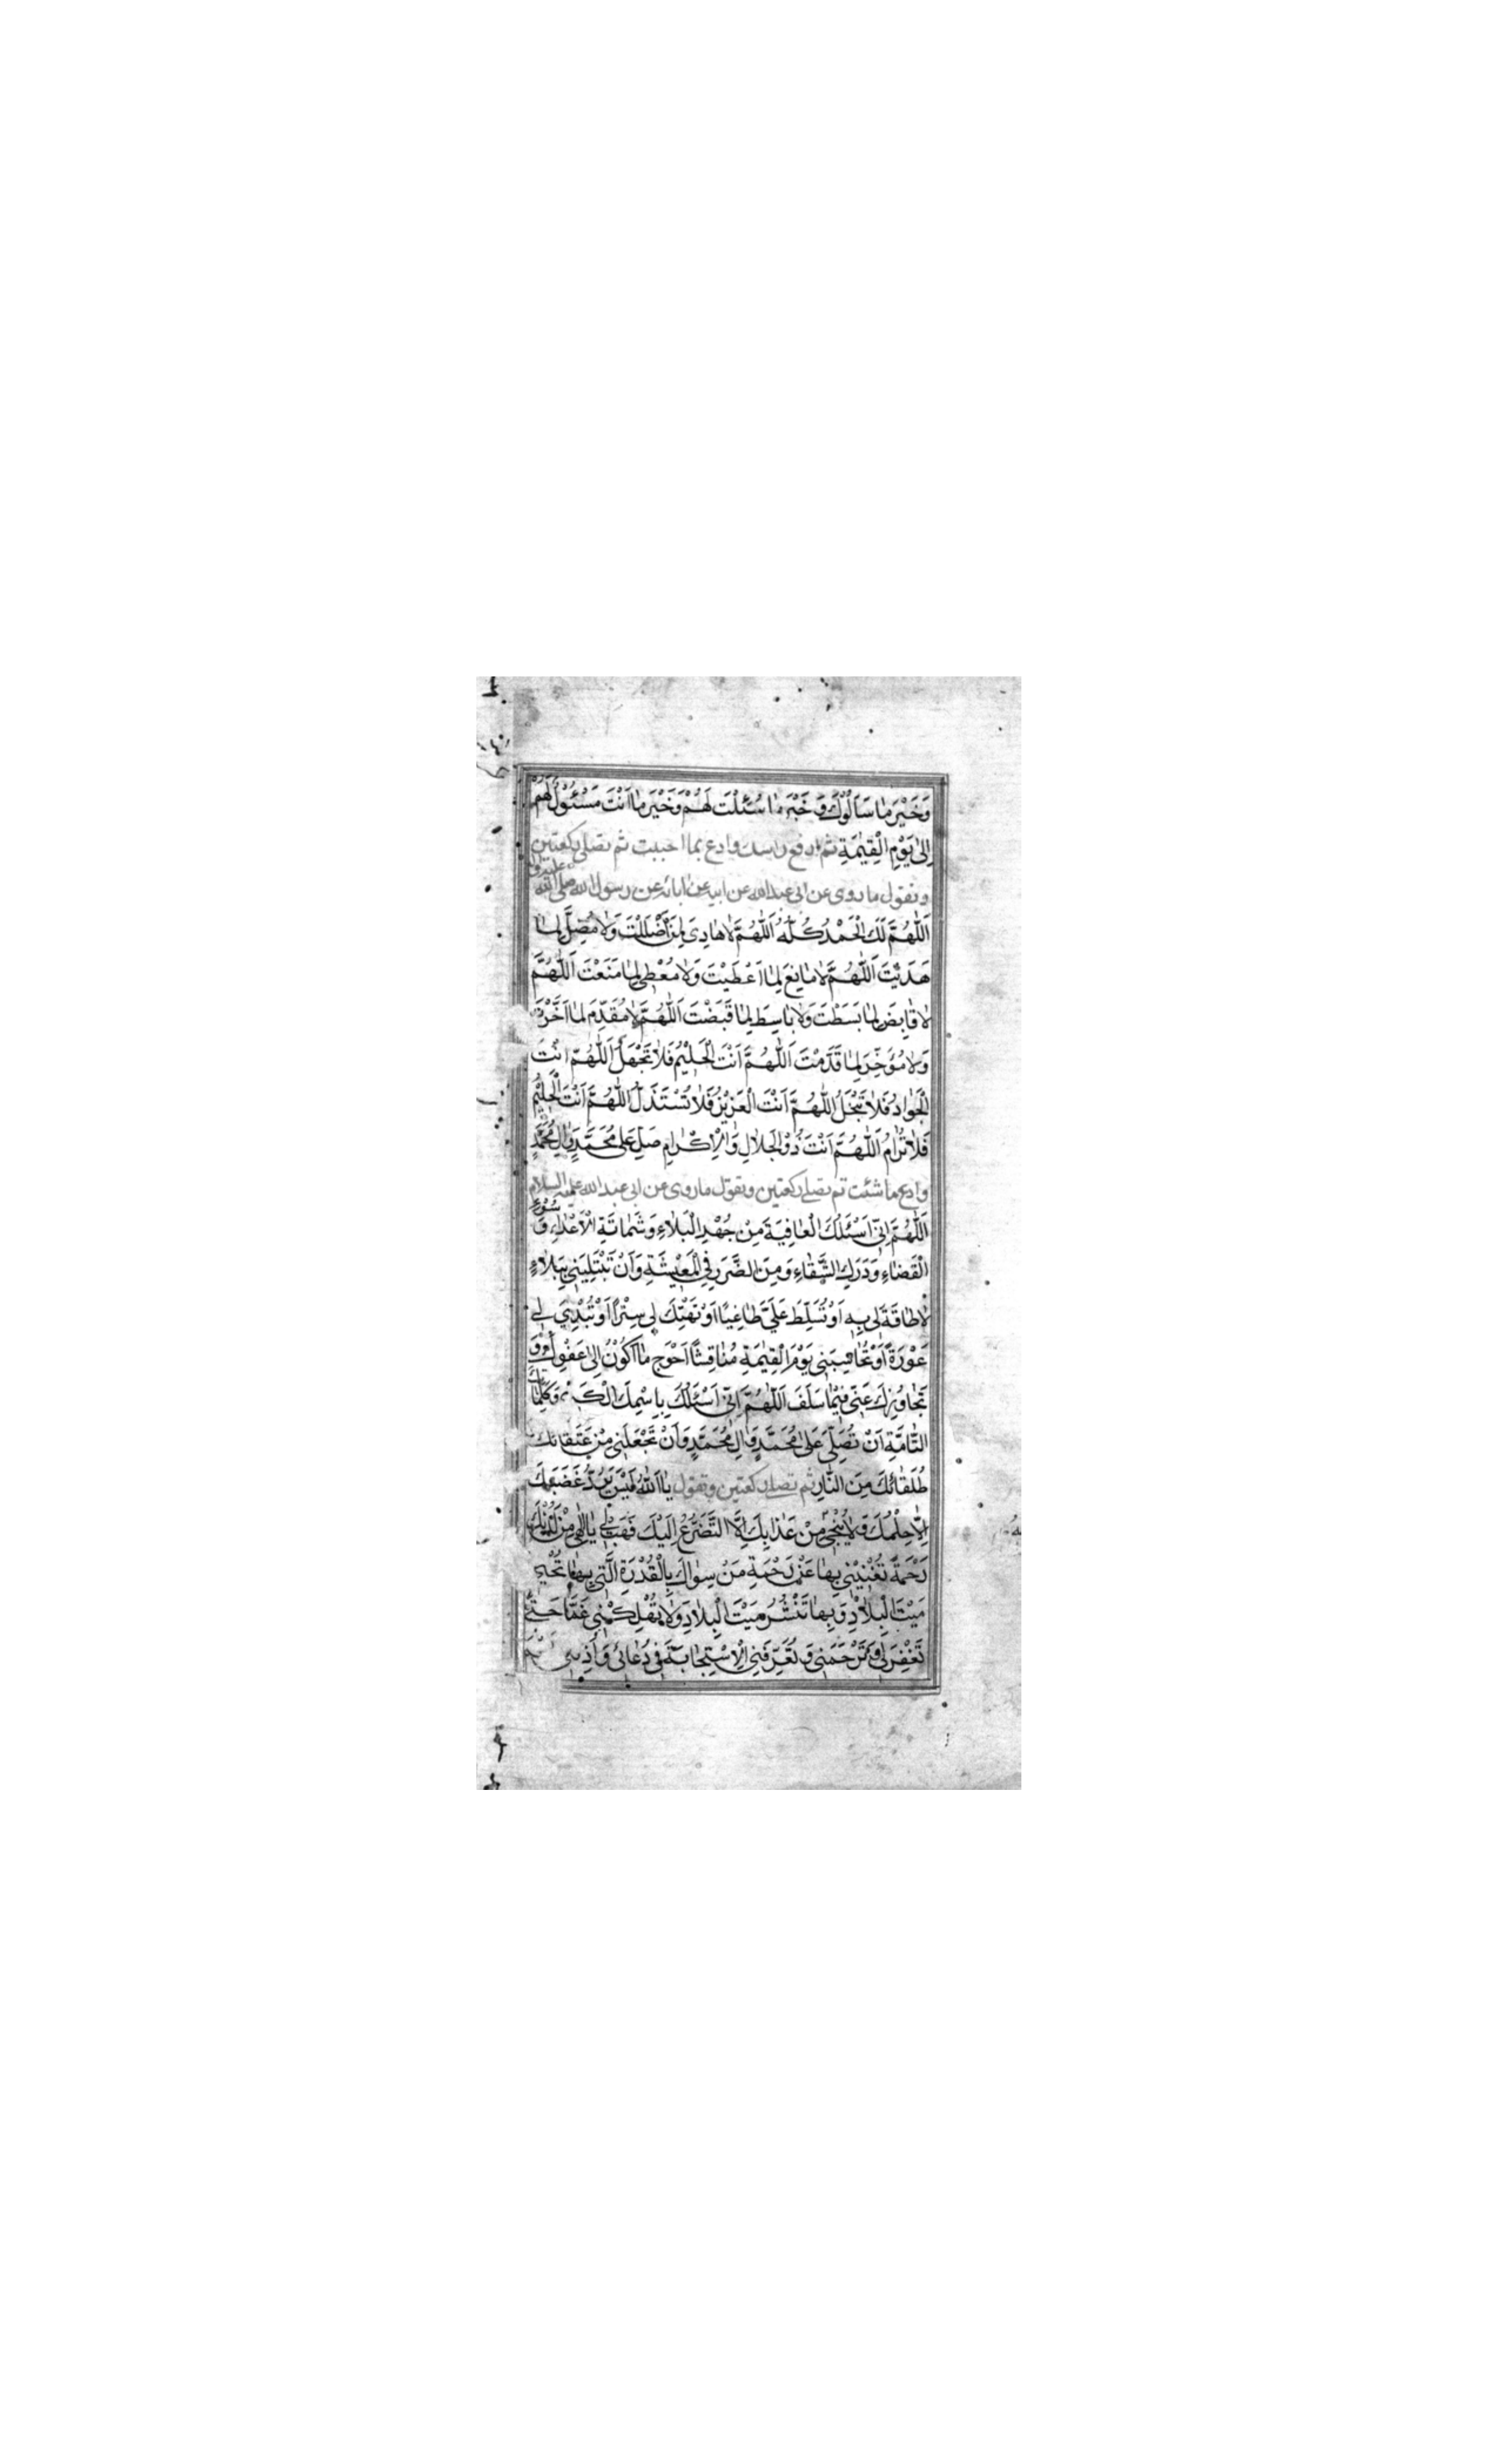 وَخَيْرَ مٰا سَاَلُوْكَ وَ خَيْرَ مٰا سُئِلْتَ لَهُمْ وَخَيْرَ مٰا اَنْتَ مَسْئُوْلٌ لَهُمْ
اِلىٰ يَوْمِ الْقِيٰمَةِ ثم ارفع راسك وادع بما احببت ثم تصلى ركعتين
وتقول ما روى عن ابى عبد الله عن ابيه عن ابائه عن رسول الله صلى الله عليه و
اَللّٰهُمَّ لَكَ الْحَمْدُ كُلُّهُ اَللّٰهُمَّ لاٰ هٰادِىَ لِمَنْ اَضْلَلْتَ وَلاٰ مُضِلَّ لِمٰا
هَدَيْتَ اَللّٰهُمَّ لاٰ مٰانِعَ لِمٰا اَعْطَيْتَ وَلاٰ مُعْطِىَ لِمٰا مَنَعْتَ اَللّٰهُمَّ
لاٰ قٰابِضَ لِمٰا بَسَطْتَ وَلاٰ بٰاسِطَ لِمٰا قَبَضْتَ اَللّٰهُمَّ لاٰ مُقَدِّمَ لِمٰا اَخَّرْتَ
وَلاٰ مُؤَخِّرَ لِمٰا قَدَّمْتَ اَللّٰهُمَّ اَنْتَ الْحَلِيْمُ فَلاٰ تَجْهَلُ اَللّٰهُمَّ اَنْتَ
الْجَوٰادُ فَلاٰ تَبْخَلُ اَللّٰهُمَّ اَنْتَ الْعَزِيْزُ فَلاٰ تُسْتَذَلُّ اَللّٰهُمَّ اَنْتَ الْحَلِيْمُ
فَلاٰ تُرٰامُ اَللّٰهُمَّ اَنْتَ ذُوْ الْجَلاٰلِ وَالْاِكْرٰامِ صَلِّ عَلىٰ مُحَمَّدٍ وَاٰلِ مُحَمَّدٍ
وادع ما شئت ثم تصلى ركعتين وتقول ما روى عن ابى عبد الله عليه السلام
اَللّٰهُمَّ اِنّىٖ اَسْئَلُكَ الْعٰافِيَةَ مِنْ جُهْدِ الْبَلاٰءِ وَشَمٰاتَةِ الْاَعْدٰاءِ وَ سُوْءِ
الْقَضٰاءِ وَدَرَكِ الشَّقٰاءِ وَمِنَ الضَّرَرِ فِى الْمَعِيْشَةِ وَاَنْ تَبْتَلِيَنىٖ بِبَلاٰءٍ
لاٰ طٰاقَةَ لىٖ بِهٖ اَوْ تُسَلِّطَ عَلَىَّ طٰاغِيًا اَوْ تَهْتِكَ لىٖ سِتْراً اَوْ تُبْدِىَ لىٖ
عَوْرَةً اَوْ تُحٰاسِبَنىٖ يَوْمَ الْقِيٰمَةِ مُنٰاقِشًا اَحْوَجَ مٰا اَكُوْنُ اِلىٰ عَفْوِكَ وَ
تَجٰاوُزِكَ عَنّىٖ فيْمٰا سَلَفَ اَللّٰهُمَّ اِنّىٖ اَسْئَلُكَ بِاِسْمِكَ الْكَرِيْمِ وَكَلِمٰاتِكَ
التّٰامَّةِ اَنْ تُصَلِّىَ عَلىٰ مُحَمَّدٍ وَاٰلِ مُحَمَّدٍ وَاَنْ تَجْعَلَنىٖ مِنْ عُتَقٰائِكَ
طُلَقٰائِكَ مِنَ النّٰارِ ثم تصلى ركعتين وتقول يٰا اَللّٰهُ لَيْسَ يَرُدُّ غَضَبَكَ
اِلاّٰ حِلْمُكَ وَلاٰ يُنْجىٖ مِنْ عَذٰابِكَ اِلاَّ التَّضَرُّعُ اِلَيْكَ فَهَبْ لىٖ يٰا اِلٰهىٖ مِنْ لَدُنْكَ
رَحْمَةً تُغْنِيْنىٖ بِهٰا عَنْ رَحْمَةِ مَنْ سِوٰاكَ بِالْقُدْرَةِ الَّتىٖ بِهٰا تُحْيىٖ
مَيْتَ الْبِلاٰدِ وَبِهٰا تَنْشُرُ مَيْتَ الْبِلاٰدِ وَلاٰ تُهْلِكْنىٖ غَمًّا حَتّىٰ
تَغْفِرَ لىٖ وَتَرْحَمَنىٖ وَتُعَرِّفَنىٖ الْاِسْتِجٰابَةَ فىٖ دُعٰائىٖ وَاَذِقْنىٖ